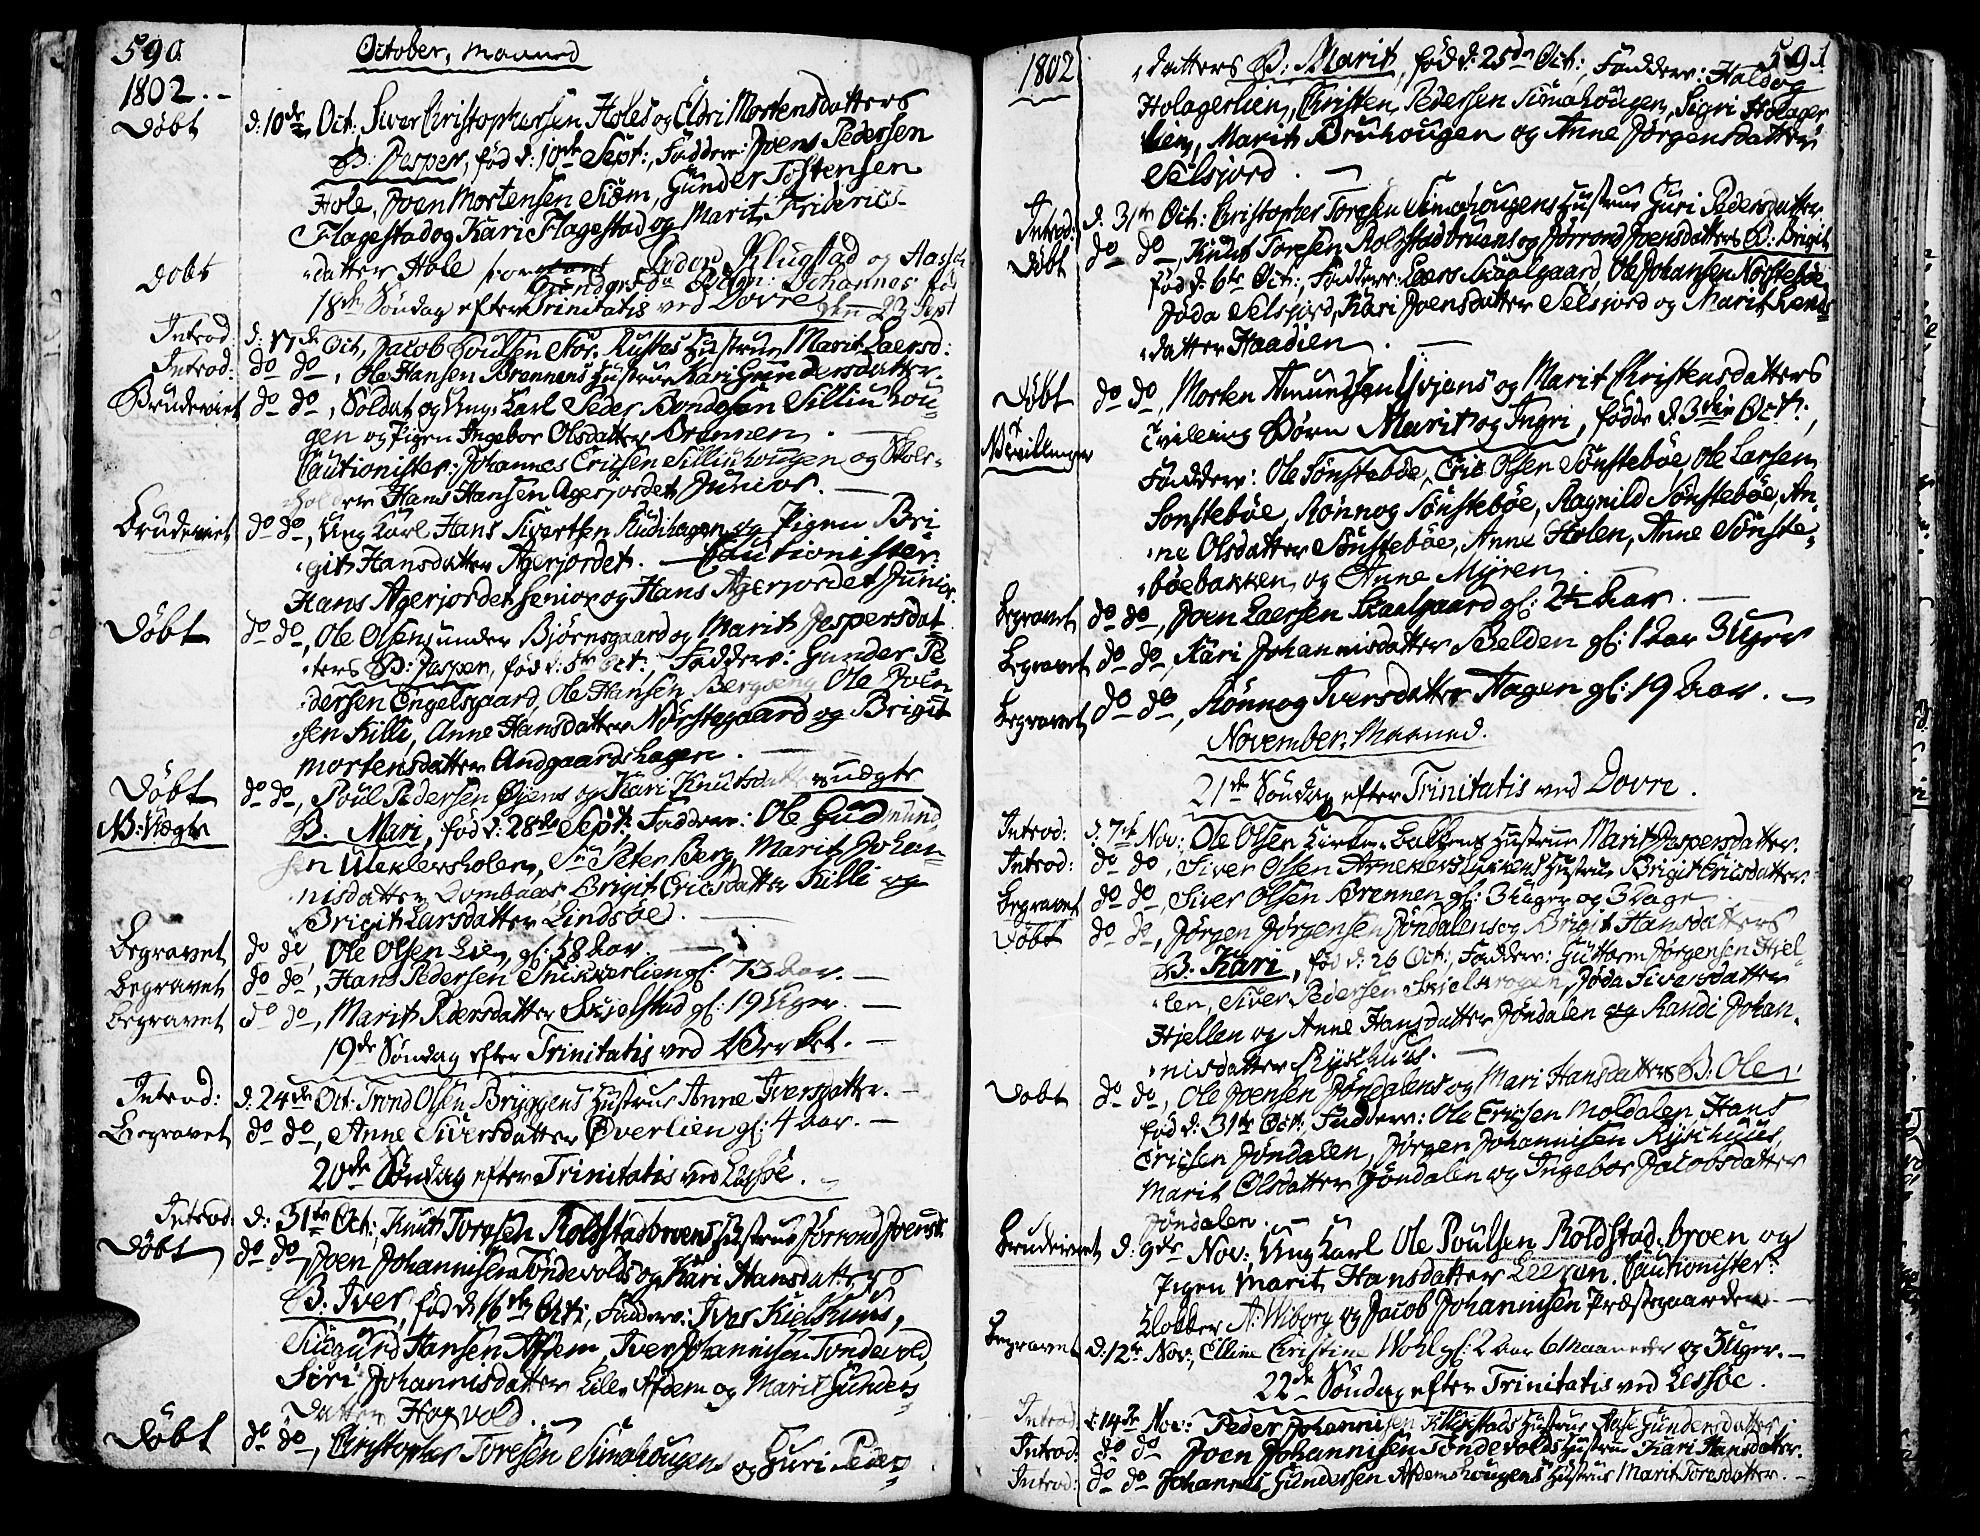 590.
October, Maaned
1802.-
Døbt d: 10de Oct: Siver Christophersen Holes og Eldri Mortensdatters
B: Jesper, fød d: 10de Sept:, Faddere: Joens Pedersen
Hole, Joen Mortensen Siom, Gunder Tostensen
Flagestad og Kari Flagestad og Marit Friderics-
datter Hole
Døbt Peder Klugstad og
B: Johannes fød
18de Søndag efter Trinitatis ved Dovre den 23 Sept
Introd: d: 17de Oct, Jacob Poulsen Stor. Rustes Hustrue Marit Laersd:
Introd: do do, Ole Hansen Brennens Hustrue Kari Gundersdatter.
Brudeviet do do, Soldat og Ung Karl Peder Bondesen Silliuhou-
gen og Pigen Ingebor Olsdatter Brennen.
Cautionister: Johannes Ericsen Silliuhougen og Skole-
holder Hans Hansen Agerjordet Junior.
Brudeviet do do, Ung Karl Hans Sivertsen Rudihagen og Pigen Bri-
git Hansdatter Agerjordet. Cautionister:
Hans Agerjordet Senior og Hans Agerjordet Junior.
Døbt do do, Ole Olsens under Bjørnsgaard og Marit Jespersdat-
ters B: Jesper, fød d: 5te Oct:, Faddere: Gunder Pe-
dersen Engelsgaard, Ole Hansen Bergseng Ole Joen-
sen Killi, Anne Hansdatter Norstegaard og Brigit
Mortensdatter Andgaardshagen.
Døbt do do, Poul Pedersen Øyens og Kari Knutsdatters uægte
NB: Uægte B. Mari, fød d: 28de Sept: Faddere: Ole Gudmund-
sen Meklersholen, Sr Peter Berg, Marit Johan-
nisdatter Dombaas Brigit Ericsdatter Killi og
Brigit Larsdatter Lindsøe.
Begravet do do, Ole Olsen Lie, gl: 58 Aar.
Begravet do do, Hans Pedersen Snikkerlien gl: 73 Aar.
Begravet do do, Marit Pedersdatter Skjelstad gl: 19 Uger.
19de Søndag efter Trinitatis ved Værket.
Introd: d: 24de Oct: Trond Olsen Bryggens Hustrue Anne Iversdatter.
Begravet do do, Anne Siversdatter Øverlien gl: 4 Aar.
20de Søndag efter Trinitatis ved Lessøe.
Introd: d: 31te Oct:, Knut Toresen Rolstadbroens Hustrue Jorrond Joensd:
Døbt do do, Joen Johannisen Tøndevolds og Kari Hansdatters
B. Iver, fød d: 16de Oct:, Faddere: Iver Kielshuus,
Siugurd Hansen Afdem, Iver Johannisen Tondevold,
Siri Johannisdatter Lille Afdem og Marit Gunders-
datter Hagvold.
Døbt do do, Christopher Toresen Simahougens og Guri Peders-
591
1802
datters B: Marit, fød d: 25de Oct: Faddere: Haldog
Holagerlien, Christen Pedersen Simahougen, Sigri Holager
lien, Marit Bruhougen og Anne Jørgensdatter
Selsjord.
Introd: d: 31te Oct: Christopher Toresen Simahougens Hustrue Guri Pedersdatter.
Døbt do do, Knut Toresen Rolstadbruens og Jorrond Joensdatters B: Brigit
fød d: 6te Oct:, Faddere: Laers Skaalgaard, Ole Johansen Norstebøe
Joda Selsjord, Kari Joensdatter Selsjord og Marit
datter Haadien.
Døbt do do, Morten Amundsen og Marit Christensdatters
NB: Tvillinger Tvilling Børn Marit og Ingri, fødde d: 3die Oct:,
Faddere: Ole Sønstebøe, Eric Olsen Sønstebøe Ole Larsen
Sønstebøe, Rønnog Sønstebøe, Ragnild Sønstebøe, An-
ne Olsdatter Sønstebøe, Anne Holen, Anne Sønste-
bøebakken og Anne Myren.
Begravet do do, Joen Laersen Skaalgaard gl: 2½ Aar.
Begravet do do, Kari Johannisdatter Selden gl: 1 Aar 3 Uger
Begravet do do, Rønnog Iversdatter Hagen gl: 19 Aar.
November Maaned.
21de Søndag efter Trinitatis ved Dovre.
Introd: d: 7de Nov: Ole Olsen Lirke-Bakkens Hustrue Marit Jespersdatter.
Introd: do do, Siver Olsen Hustrue Brigit Ericsdatter.
Begravet do do, Siver Olsen Brennen gl: 3 Uger og 3 Dage
Døbt do do, Jørgen Jørgensen Jøndalens og Brigit Hansdatters
B. Kari, fød d: 26 Oct:, Faddere: Guttorm Jørgensen Hjel-
len, Siver Pedersen Skjelkrogen, Joda Siversdatter
Hjellen og Anne Hansdatter Jøndalen og Randi Johan-
nisdatter Ryschuus.
Døbt do do, Ole Joensen Jøndalens og Mari Hansdatters B: Ole,
fød d: 31te Oct:, Faddere: Ole Ericsen Moldalen, Hans
Ericsen Jøndalen, Jørgen Johannisen Ryschuus,
Marit Olsdatter Jøndalen og Ingebor Jacobsdatter
Jøndalen.
Brudeviet d: 9de Nov: Ung Karl Ole Poulsen Roldstad. broen og
Pigen Marit Hansdatter Leeren. Cautionister:
Klokker A: Wiborg og Jacob Johannisen Præstegaarden
Begravet d: 12te Nov:, Elline Christine Wohl gl: 2 Aar 6 Maaneder og 3 Uger.
22de Søndag efter Trinitatis ved Lessøe.
Introd: d: 14de Nov: Peder Johannisen Killiestads Hustrue Aase Gundersdatter
Introd: do do Joen Johannisen Tøndevolds Hustrue Kari Hansdatter.
Introd: do do Johannes Gundersen Afdemshougens Hustrue Marit Toresdatter.